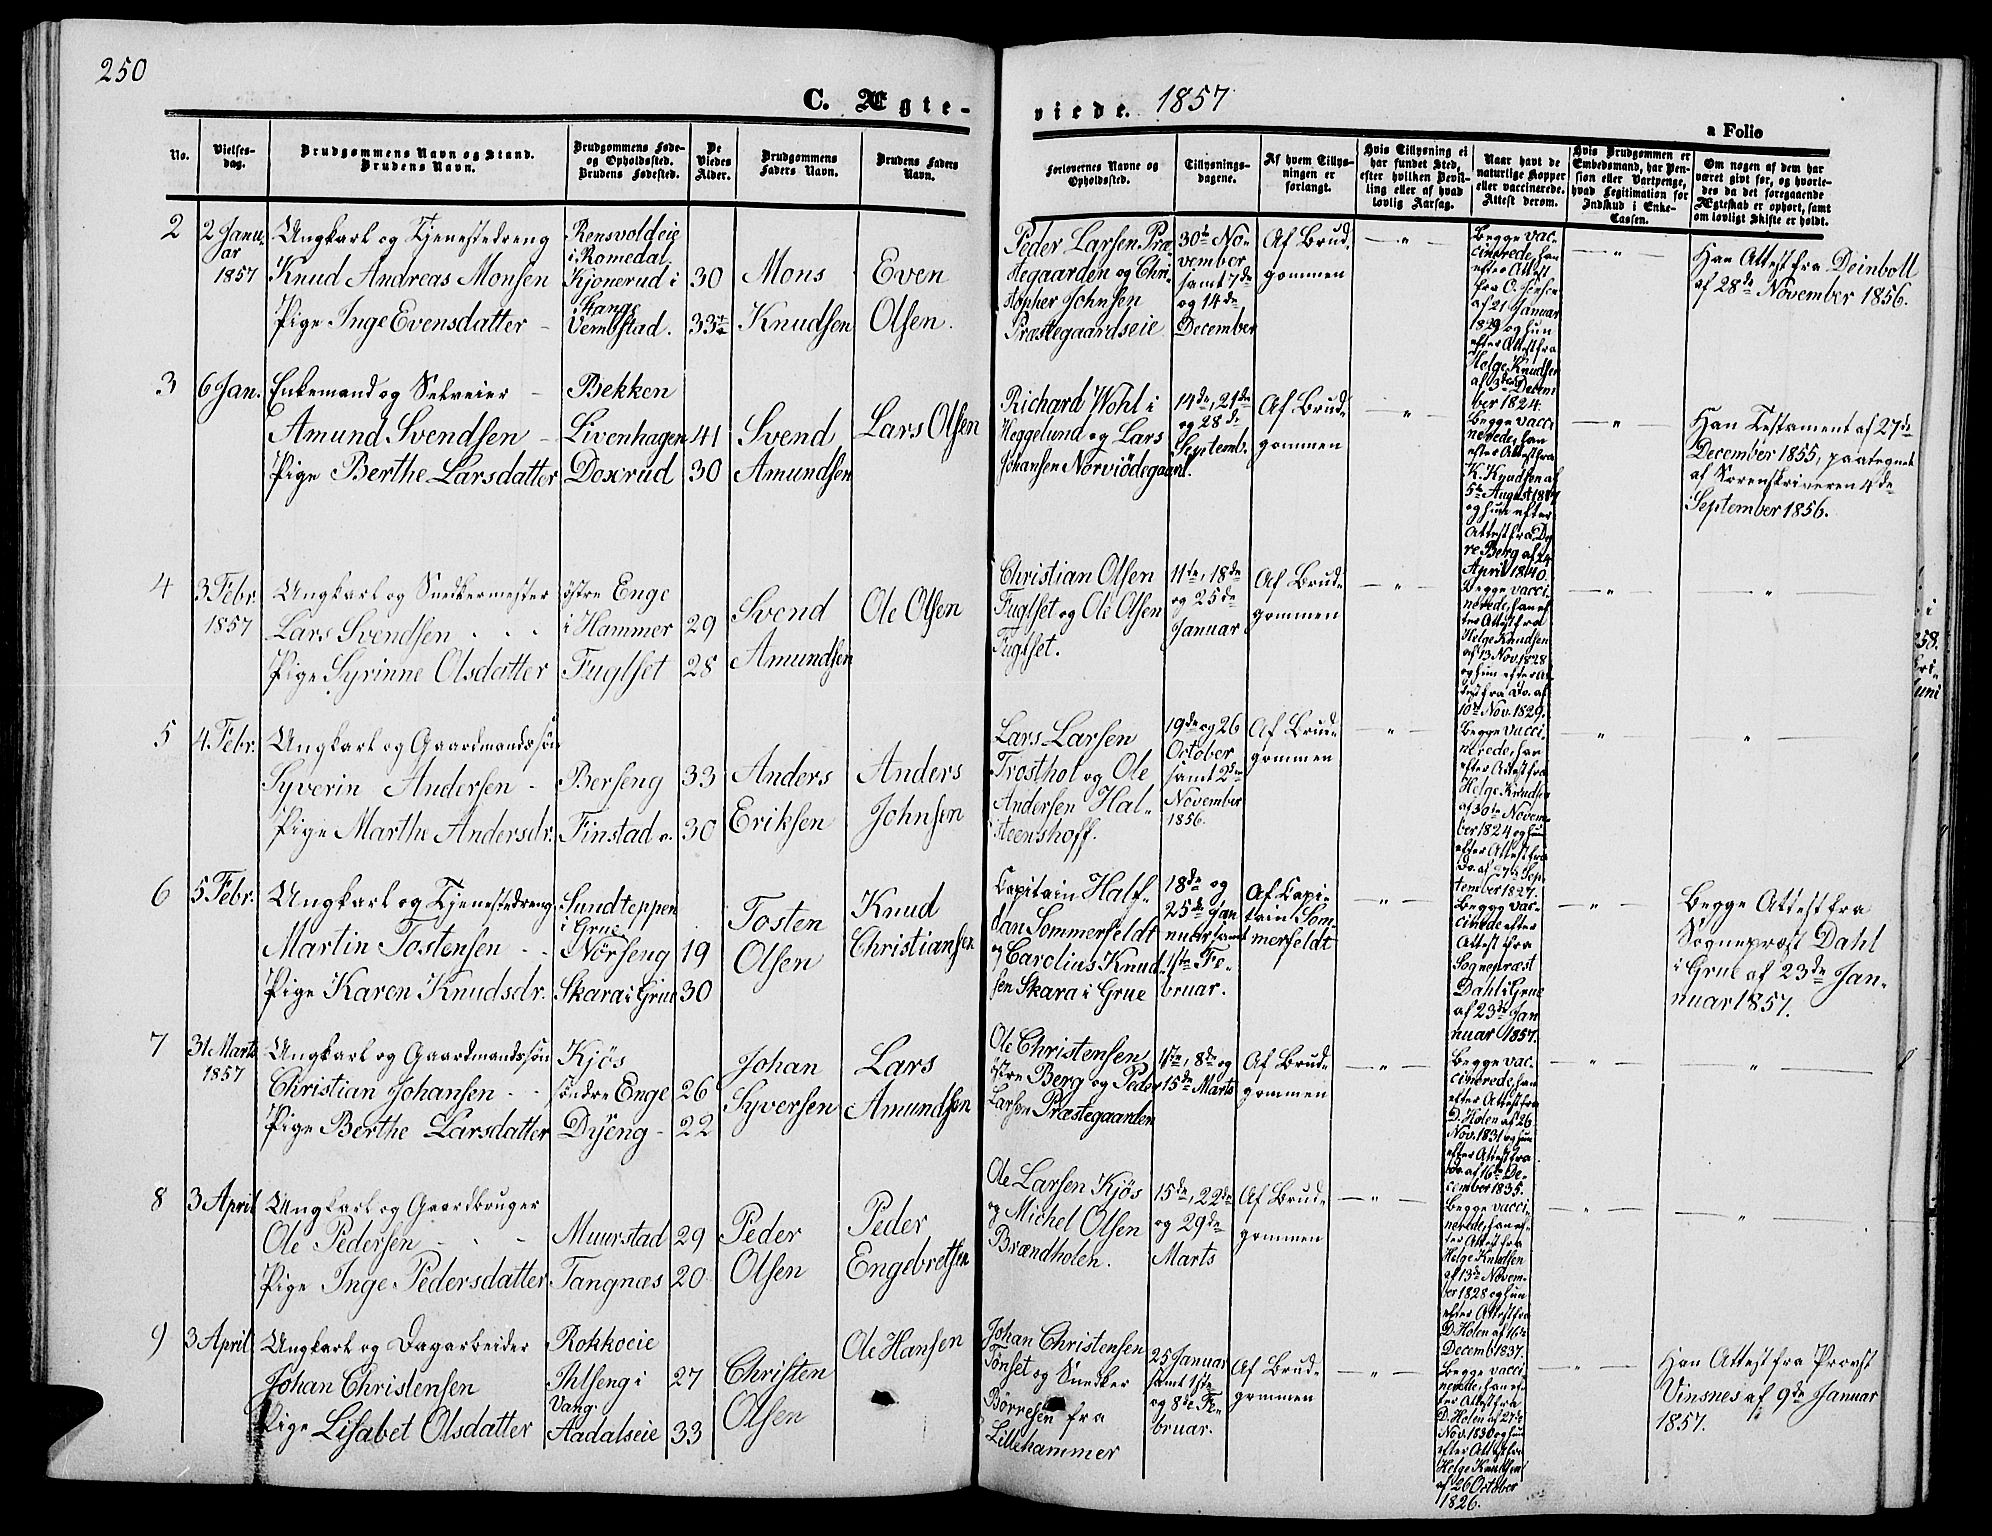 250
C. Ægte-
viede. 1857
a Folio
No.
Vielses-
dag.
Brudgommens Navn og Stand.
Brudens Navn.
Brudgommens Føde-
og Opholdssted.
Brudens Fødested.
De
Viedes
Alder.
Brudgommens
Faders Navn.
Brudens Faders
Navn.
Forlovernes Navne og
Opholdssted.
Tillysnings-
dagene.
Af hvem Tillys-
ningen er
forlangt.
Hvis Tillysning ei
har fundet Sted,
efter hvilken Bevil-
ling eller af hvad
lovlig Aarsag.
Naar havt de
naturlige Kopper
eller vaccinerede.
Attest derom.
Hvis Brudgommen er
Embedsmand, har Pen-
sion eller Vartpenge,
hvad Legitimation for
Indskud i Enke-
Cassen.
Om nogen af dem har
været givt før, og hvorle-
des da det foregaaende
Ægteskab er ophørt, samt
om lovligt Skifte er holdt.
2
2 Janu-
ar
1857
Ungkarl og Tjenestedreng
Knud Andreas Monsen
Pige Inge Evensdatter
Rensvoldeie
i Romedal
Kjonerud i
Stange
Vembstad.
30
33
Mons
Knudsen
Even
Olsen.
Peder Larsen Præ-
stegaarden og Chri-
stopher Johnsen
Præstegaardseie
30te No-
vember
samt 7de
og 14de
December
Af Brud-
gommen
Begge vac-
cinerede, han
efter Attest
fra
af 21 Januar
1829 og hun
efter Attest fra
Helge Knudsen
af 3de Decem
ber 1824.
Han Attest fra Deinboll
af 28de November 1856.
3
6 Jan.
Enkemand og Selveier
Amund Svendsen
Pige Berthe Larsdatter
Bekken
Livenhagen
Doxrud
41
30
Svend
Amundsen
Lars Olsen
Richard Wohl i
Heggelund og Lars
Johansen Norviödegaard.
14de, 21de
og 28de
Septemb.
Af Brud-
gommen
Begge vacci
nerede, han
efter Attest fra
K. Knudsen af
5te August
og hun efter
Attest fra Do
re Berg af 24
April 1840.
Han Testament af 27de
December 1855, paategnet
af Sorenskriveren 4de
September 1856.
4
3 Febr.
1857
Ungkarl og Snedkermester
Lars Svendsen
Pige Syrinne Olsdatter
östre Enge
i Hammer
Fuglset
29
28
Svend
Amundsen
Ole Olsen
Christian Olsen
Fuglset og Ole Olsen
Fuglset.
11te, 18de
og 25de
Januar
Af Brud-
gommen
Begge vacci
nerede, han ef
ter Attest fra
Helge Knudsen
af 13 Nov. 1828
og hun efter At-
test fra Do. af
10de Nov. 1829.
5
4 Febr.
Ungkarl og Gaardmandssøn
Syverin Andersen
Pige Marthe Andersdr.
Berseng
Finstad
33
30
Anders
Eriksen
Anders
Johnsen
Lars Larsen
Trosthol og Ole
Andersen Hal-
steenshoff.
19de og 26
October
samt 2den
November
1856.
Af Brud-
gommen
Begge vacci-
nerede, han
efter Attest fra
Helge Knudsen
af 30te Novem-
ber 1824 og hun
efter Attest fra
Do. af 27de Sep-
tember 1827.
6
5 Febr.
Ungkarl og Tjenestedreng
Martin Tostensen
Pige Karen Knudsdr.
Sundteppen
i Grue
Nörseng
Skara i Grue
19
30
Tosten
Olsen
Knud
Christiansen
Capitain Half-
dan Sommerfeldt
og Carolius Knud-
sen Skara i Grue
18de og
25de Jan
nuar samt
1ste Fe-
bruar.
Af Capi-
tain Som-
merfeldt
Begge vac-
cinede efter
Attest fra
Sognepræst
Dahl i Grue
af 23de Jan
nuar 1857.
Begge Attest fra
Sognepræst Dahl
i Grue af 23de Jan-
nuar 1857.
7
31 Marts
1857
Ungkarl og Gaardmandssøn
Christian Johansen
Pige Berthe Larsdatter
Kjös
söndre Enge
Dÿeng
26
22
Johan
Syversen
Lars
Amundsen
Ole Christensen
östre Berg og Peder
Larsen Præstegaarden
1ste, 8de og
15de Marts
Af Brud-
gommen
Begge vac-
cinerede, han
efter Attest fra
D. Holen af 26
Nov. 1831 og hun
efter Attest fra
Do. af 16de De-
cember 1835.
8
3 April
Ungkarl og Gaardbruger
Ole Pedersen
Pige Inge Pedersdatter
Muurstad
Tangnæs
29
20
Peder
Olsen
Peder
Engebretsen
Ole Larsen Kjös
og Michel Olsen
Brændholen.
15de, 22de
og 29de
Marts
Af Brud-
gommen
Begge vacci-
nerede, han ef-
ter Attest fra
Helge Knudsen
af 13de Novem-
ber 1828 og hun
efter Attest fra
D. Holen af 16de
Decemb 1837.
9
3 April
Ungkarl og Dagarbeider
Johan Christensen
Pige Lisabet Olsdatter
Rokkoeie
Ihlseng i
Vang.
Aadalseie
27
33
Christen
Olsen
Ole Hansen
Johan Christensen
Tönset og Snedker
Börresen fra
Lillehammer
25 Januar
samt 1ste
og 8de Fe-
bruar.
Af Brud-
gommen
Begge vacci-
nerede, han ef-
ter Attest fra
D. Holen af 27de
Nov. 1830 og hun
efter Attest fra
Helge Knudsen
af 26 October
1826.
Han Attest fra Provst
Vinsnes af 9de Januar
1857.